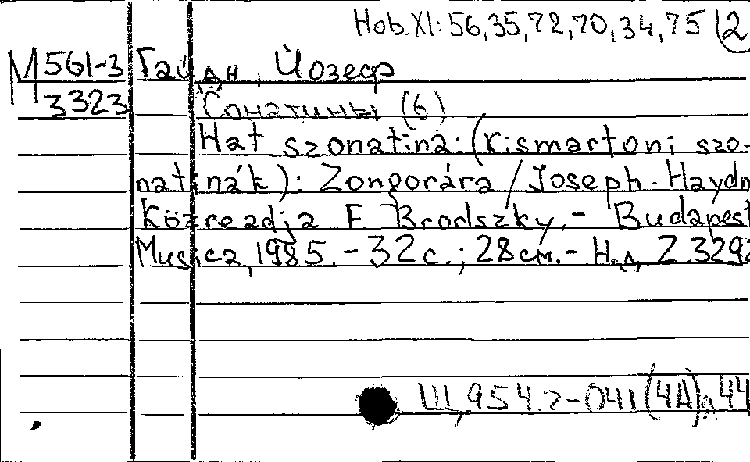 Hob. XI: 56, 35, 72, 70, 34, 75 (2
М 561-3 Гайдн, Йозеф
3323 Сонатины (6)
Hat szonatina: (Kismartoni szo-
natinák): Zongorára / Joseph Haydn
Közreadja F. Brodszky. - Budapest
Musica, 1985. - 32 с.; 28 см. - Н.д. Z. 3292
Щ 954.2-041(4А)я44